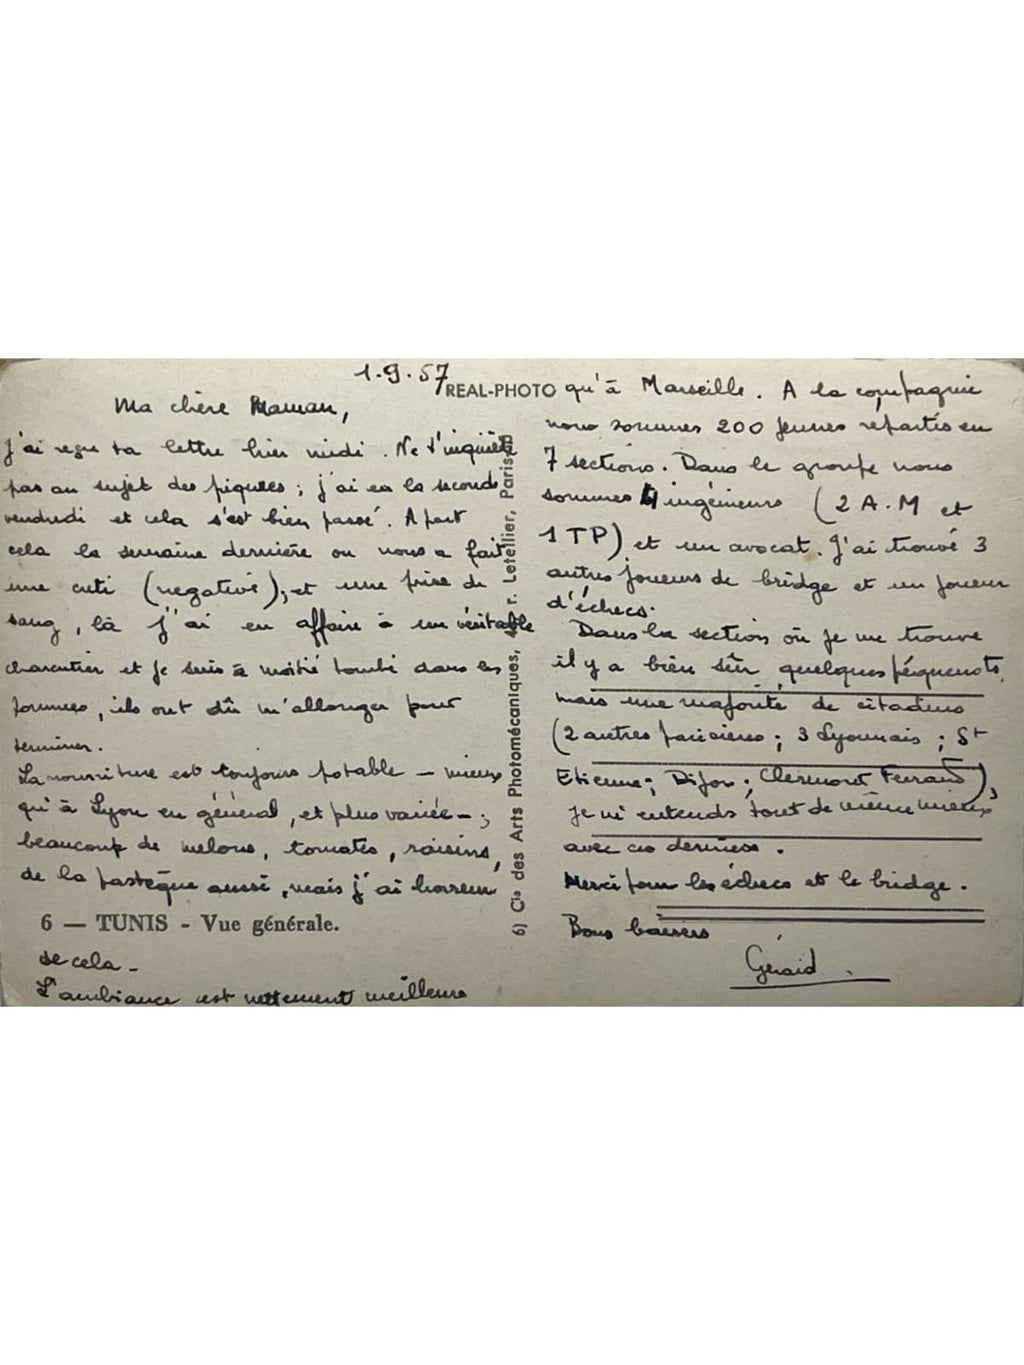 1.9.57
Ma chère Maman,
J'ai reçu ta lettre hier midi. Ne t'inquiète
pas au sujet des piqures ; j'ai eu la seconde
vendredi et cela s'est bien passé. A part
cela la semaine dernière on nous a fait
une cuti (negative), et une prise de
sang, là j'ai eu affaire à un véritable
charcutier et je suis à moitié tombé dans les
pommes, ils ont dû m'allonger pour
terminer.
La nourriture est toujours potable – mieux
qu'à Lyon en général, et plus variée – ;
beaucoup de melons, tomates, raisins,
de la pastèque aussi, mais j'ai horreur
6 — TUNIS - Vue générale.
de cela –
L'ambiance est nettement meilleure
REAL-PHOTO
6) Cie des Arts Photomécaniques, r. Letellier, Paris
qu'à Marseille. A la compagnie
nous sommes 200 jeunes répartis en
7 sections. Dans le groupe nous
sommes 4 ingénieurs (2 A.M et
1 TP) et un avocat. J'ai trouvé 3
autres joueurs de bridge et un joueur
d'échecs.
Dans la section où je me trouve
il y a bien sûr quelques péquenots,
mais une majorité de citadins
(2 autres parisiens ; 3 Lyonnais ; St
Etienne ; Dijon ; Clermont Ferrand),
je m'entends tout de même mieux
avec ces derniers.
Merci pour les échecs et le bridge.
Bons baisers
Gérard